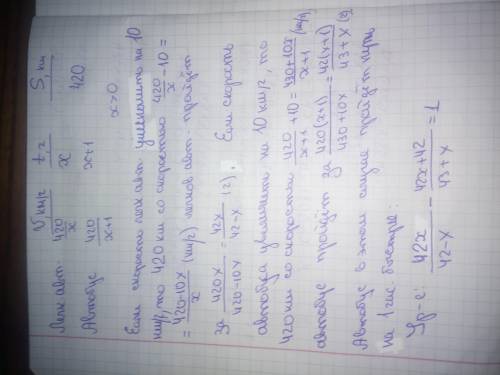 V, км/г t, г S, км
Легк авт. 420/x x 420
Автобус 420/x+1 x+1
x>0
Если скорость легк авт. уменьшить на 10
км/г, то 420 км со скоростью 420/x - 10 =
= 420-10x/x (км/г) легков авт. пройдёт
за 420x/420-10x = 42x/42-x (г). Если скорость
автобуса увеличить на 10 км/г, то
420 км со скоростью 420/x+1 + 10 = 430+10x/x+1 (км/г)
автобус пройдёт за 420(x+1)/430+10x = 42(x+1)/43+x (г)
Автобус в этом случае пройдёт путь
на 1 час быстрее:
Ур-е: 42x/42-x - 42x+42/43+x = 1